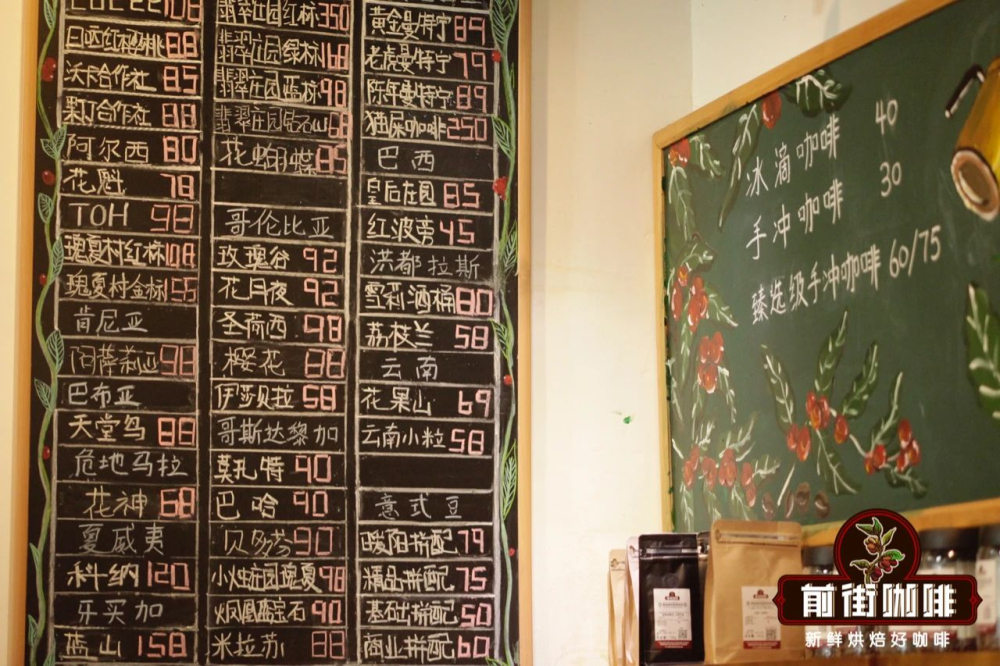 日晒红标瑰桃 88
沃卡合作社 85
果丁合作社 88
阿尔西 80
花魁 78
TOH 98
瑰夏村红标 108
瑰夏村金标 155
肯尼亚
阿萨莉亚 98
巴布亚
天堂鸟 88
危地马拉
花神 68
夏威夷
科纳 120
牙买加
蓝山 158
翡翠庄园红标 350
翡翠庄园绿标 168
翡翠庄园蓝标 98
翡翠庄园钻石山 68
花蝴蝶 85
哥伦比亚
玫瑰谷 92
花月夜 92
圣荷西 98
樱花 88
伊莎贝拉 58
哥斯达黎加
莫扎特 90
巴哈 90
贝多芬 90
小烛庄园瑰夏 98
火凤凰蓝宝石 90
米拉苏 88
黄金曼特宁 89
老虎曼特宁 79
陈年曼特宁 89
猫屎咖啡 250
巴西
皇后庄园 85
红波旁 45
洪都拉斯
雪莉酒桶 80
荔枝兰 58
云南
花果山 69
云南小粒 58
意式豆
暖阳拼配 79
精品拼配 75
基础拼配 50
商业拼配 60
冰滴咖啡 40
手冲咖啡 30
臻选级手冲咖啡 60/75
前街咖啡
新鲜烘焙好咖啡